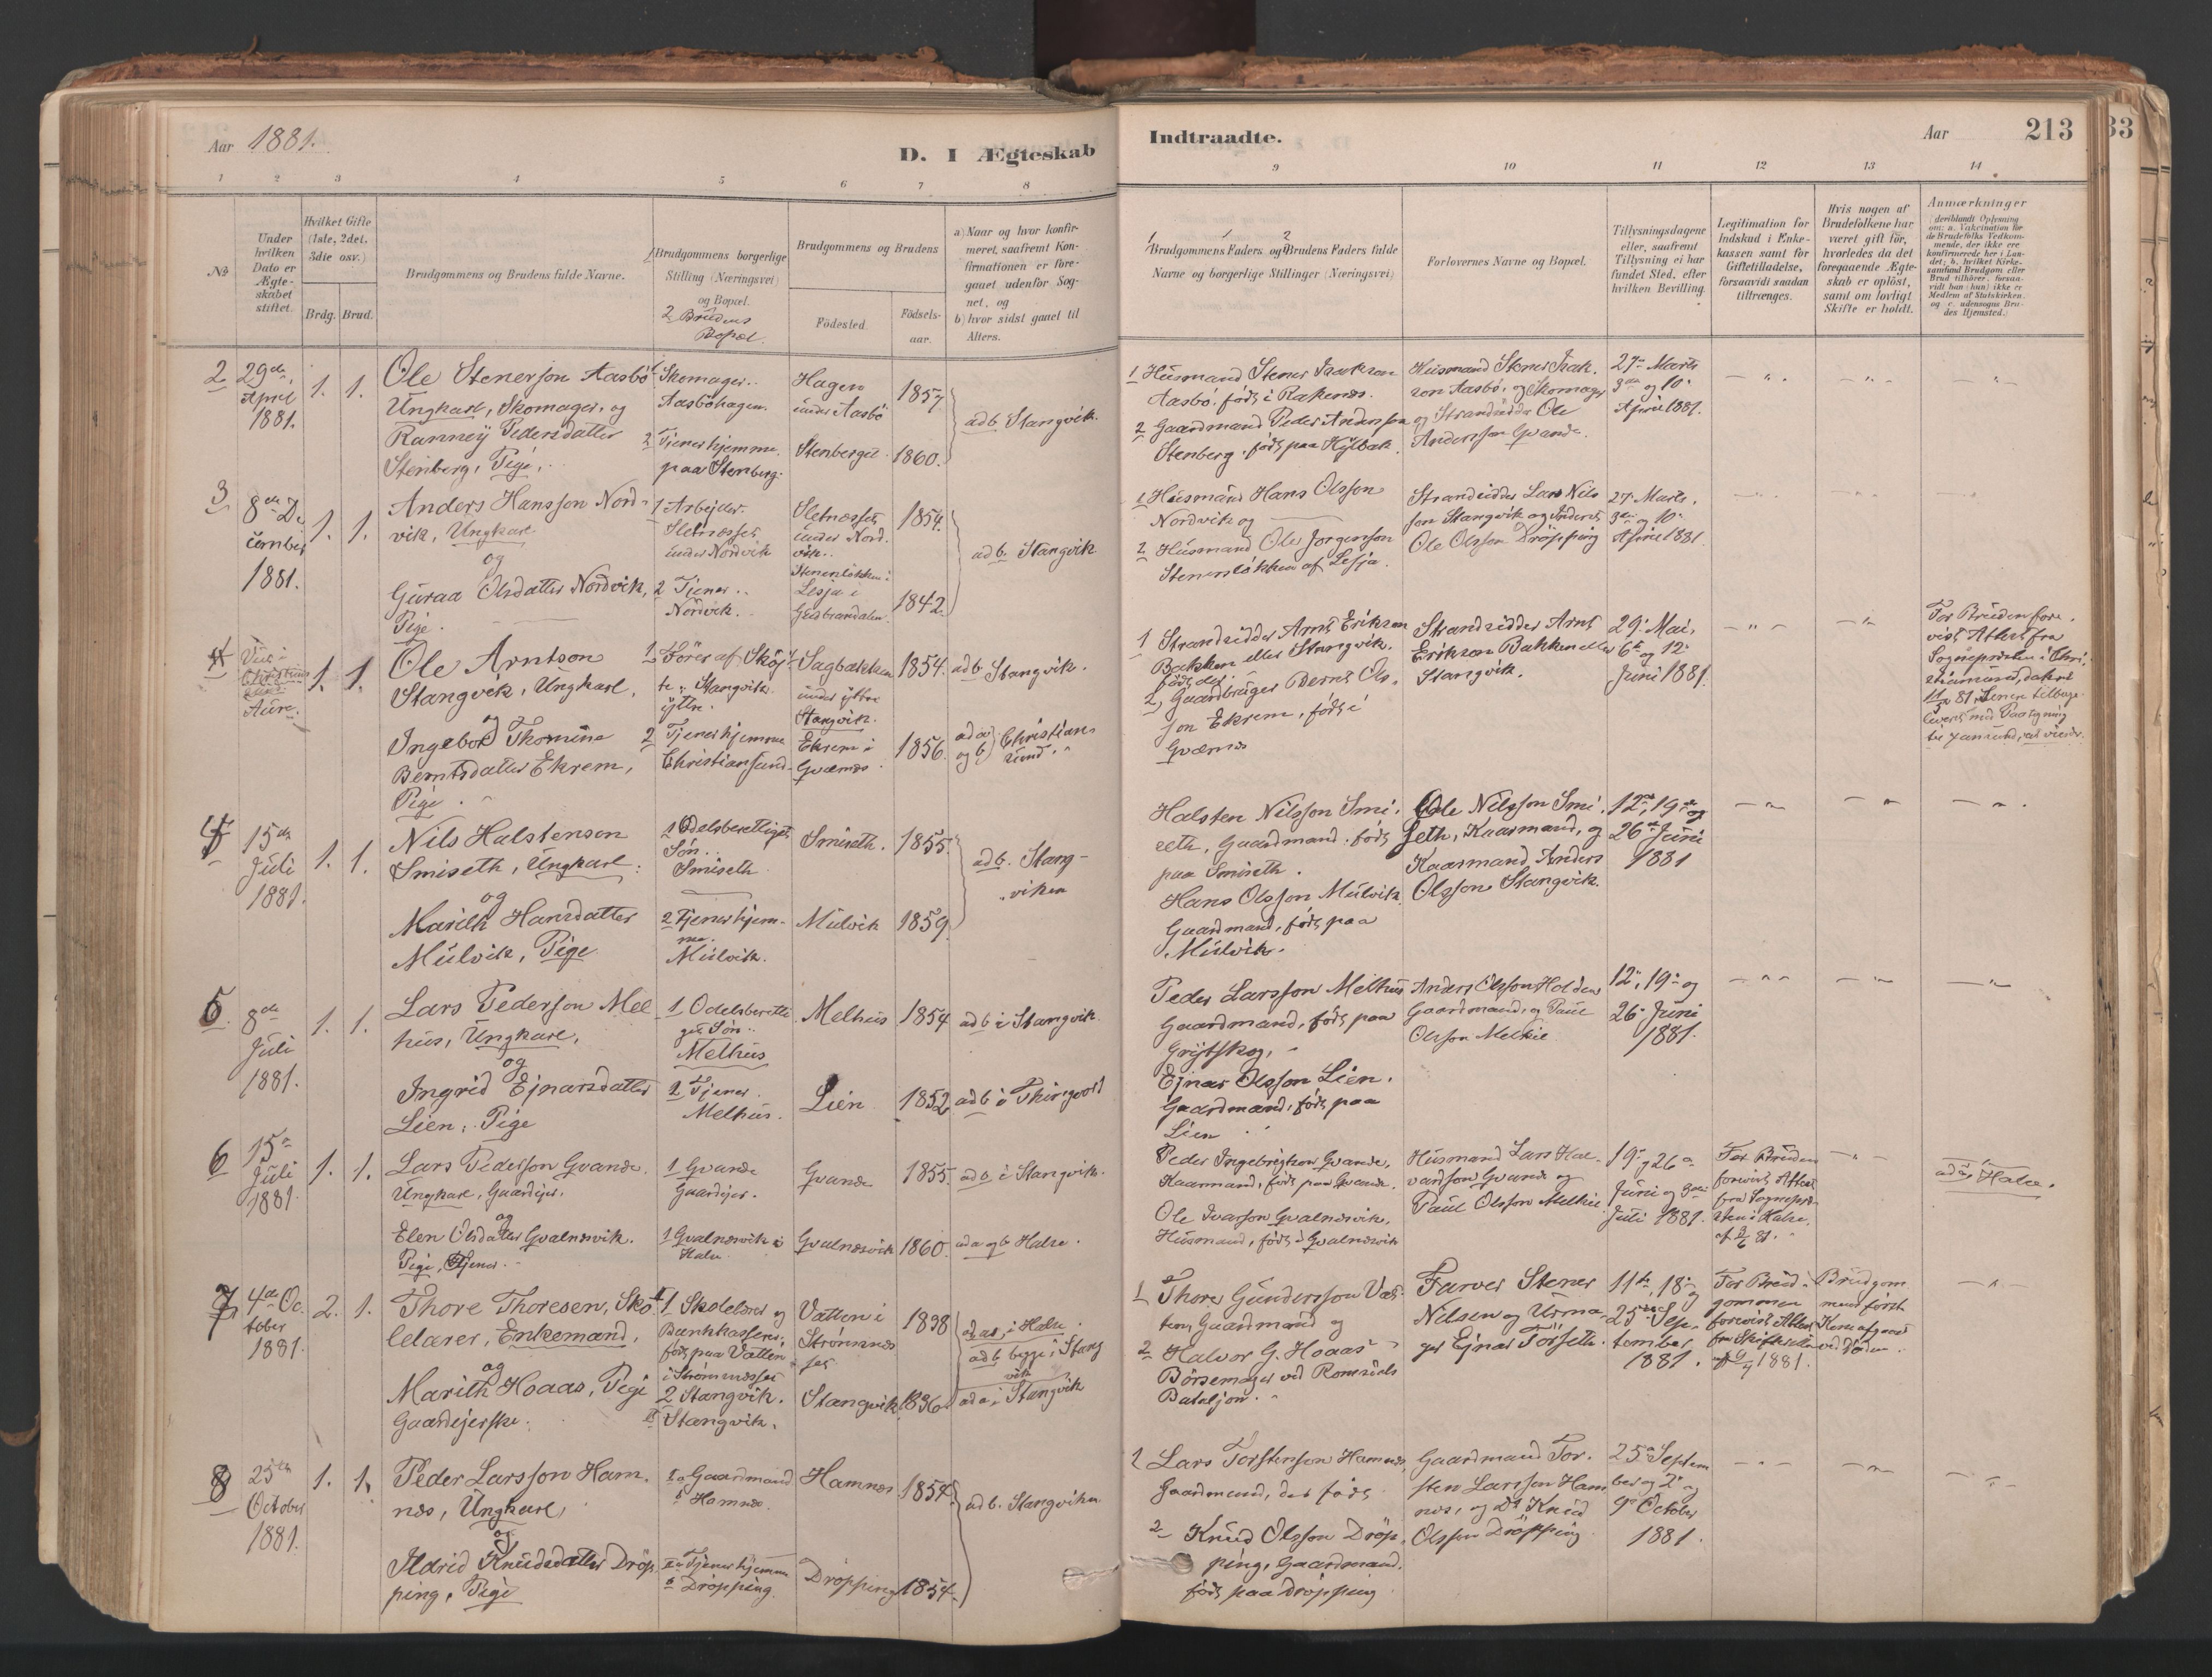 Aar 1881.
D. I Ægteskab
Indtraadte.
Aar
213
33
1 2 3 4 5 6 7 8
9 10 11 12 13 14
№
Under
hvilken
Dato er
Ægte-
skabet
stiftet.
Hvilket Gifte
(1ste, 2det,
3die osv.)
Brdg. Brud.
Brudgommens og Brudens fulde Navne.
1 Brudgommens borgerlige
Stilling (Næringsvei)
og Bopæl.
2 Brudens
Bopæl.
Brudgommens og Brudens
Fødested.
Fødsels-
aar.
a) Naar og hvor konfir-
meret, saafremt Kon-
firmationen er fore-
gaaet udenfor Sog-
net, og
b) hvor sidst gaaet til
Alters.
1 Brudgommens Faders og 2 Brudens Faders fulde
Navne og borgerlige Stillinger (Næringsvei)
Forlovernes Navne og Bopæl.
Tillysningsdagene
eller, saafremt
Tillysning ei har
fundet Sted, efter
hvilken Bevilling.
Legitimation for
Indskud i Enke-
kassen samt for
Giftetilladelse,
forsaavidt saadan
tiltrænges.
Hvis nogen af
Brudefolkene har
været gift før,
hvorledes da det
foregaaende Ægte-
skab er opløst,
samt om lovligt
Skifte er holdt.
Anmærkninger
(deriblandt Oplysning
om: a. Vakcination for
de Brudefolks Vedkom-
mende, der ikke ere
konfirmerede her i Lan-
det; b. hvilket Kirke-
samfund Brudgom eller
Brud tilhører, forsaa-
vidt han (hun) ikke er
Medlem af Statskirken.
og c. udensogns Bru-
des Hjemsted.)
2
29de
April
1881.
1. 1.
Ole Stenerson Aasbö
Ungkarl, Skomager, og
Ramney Pedersdatter
Stenberg, Pige,
1 Skomager
Aasböhagen.
2 Tjener hjemme
paa Stenberg.
Hagen
under Aasbö
Stenberget
1857
1860.
ad b Stangvik.
1 Husmand Stener Isakson
Aasbö, födt i Rakenes.
2 Gaardmand Peder Andersson
Stenberg, födt paa Hylbak.
Husmand Stener Isak-
son Aasbö, og Skomager
og Strandsidder Ole
Andersson Gvande.
27de Marts
3die og 10de
April 1881.
3
8de De-
cember
1881.
1. 1.
Anders Hansson Nord-
vik, Ungkarl
og
Guraa Olsdatter Nordvik,
Pige.
1 Arbejder
Sletnesset
under Nordvik
2 Tjener
Nordvik.
Sletnesset
under Nord-
vik.
Stenerslökken i
Lesja i
Gulbrandalen.
1854.
1842.
ad b. Stangvik.
1 Husmand Hans Olsson
Nordvik og
2 Husmand Ole Jorgenson
Stenerslökken af Lesja.
Strandsidder Lars Nils
son Stangvik og Inderst
Ole Olsson Dröpping
27. Marts,
3die og 10.
April 1881.
4
Viet i
Christian-
sund
Aure.
1. 1.
Ole Arntson
Stangvik, Ungkarl,
og
Ingebor Thomine
Berntsdatter Ekrem,
Pige.
1 Förer af Sköj-
te, Stangvik
ÿtre.
2 Tjener hjemme
Christiansund.
Sagbakken
under ÿtre
Stangvik.
Ekrem i
Gvernes.
1854.
1856.
ad b Stangvik.
ad a)
og b) Christian-
sund.
1 Strandsidder Arnt Erikson
Bakken eller Stangvik,
födt der.
2, Gaardbruger Bernt Ols-
son Ekrem, födt i
Gvernes
Strandsidder Arnt
Erikson Bakken eller
Stangvik.
29. Mai,
6te og 12.
Juni 1881.
For Bruden fore-
vist Attest fra
Sognepresten i Chri-
stiansund, dateret
81. Senere tilbage-
leveret med Paategning
5
15de
Juli
1881.
1. 1.
Nils Halstenson
Smiseth, Ungkarl:
og
Marith Hansdatter
Mulvik, Pige
1 Odelsberettiget
Sön.
Smiseth
2 Tjener hjem-
me.
Mulvik.
Smiseth.
Mulvik
1855.
1859.
ad b. Stang-
viken
Halsten Nilsson Smi-
seth, Gaardmand, födt
paa Smiseth.
Hans Olsson Mulvik
Gaardmand, födt paa
Mulvik.
Ole Nilsson Smi-
seth, Kaarmand, og
Kaarmand Anders
Olsson Stangvik.
12te, 19de og
26de Juni
1881
5.
8de
Juli
1881.
1. 1.
Lars Pederson Mel
hus, Ungkarl,
og
Ingrid Ejnarsdatter
Lien, Pige
1 Odelsberetti
get Sön.
Melhus
2 Tjener
Melhus.
Melhus
Lien
1854
1852
ad b i Stangvik.
ad b i Thingvold
Peder Larsson Melhus
Gaardmand, födt paa
Grytskog,
Ejnar Olsson Lien,
Gaardmand, födt paa
Lien
Anders Olsson Holden
Gaardmand, og Paul
Olsson Melkil
12te, 19de og
26de Juni
1881.
6
15de
Juli
1881
1. 1.
Lars Pedersson Gvande.
Ungkarl, Gaardejer,
og
Elen Olsdatter Gvalnesvik.
Pige, Tjener.
1 Gvande
Gaardejer.
1 Gvalnesvik i
Halse.
Gvande
Gvalnesvik
1855.
1860.
ad a i Stangvik.
ad a og b Halse.
Peder Ingebrigtson Gvande,
Kaarmand, födt paa Gvande.
Ole Ivarson Gvalnesvik,
Husmand, födt i Gvalnesvik
Husmand Lars Hal-
vardson Gvande og
Paul Olsson Melkil
19de, 26de
Juni og 3die
Juli 1881.
For Bruden
forevist Attest
fra Sognepre-
sten i Halse,
81.
Halse.
7
4de Oc-
tober
1881.
2. 1.
Thore Thoresen, Sko-
lelærer, Enkemand,
og
Marith Hoaas, Pige
Gaardejerske.
1 Skolelærer og
Bankkasserer,
födt paa Vatten
i Strömnesset
2 Stangvik.
Stangvik.
Vatten i
Strömnes
set
Stangvik
1838
1836
ad a, i Halse.
ad b begge i Stang
vik
ad a, i Stangvik
1 Thore Gundersson Vat-
ten, Gaardmand og
2 Halvor G. Hoaas
Börsemager ved Romsdals
Bataljon.
Farver Stener
Nilsen og Urma-
ger Ejnar Torseth.
11te, 18de og
25de Sep-
tember
1881.
For Brud-
gommen
forevist Attest
fra Skifteretten
1881.
Brudgom
mens först
Kone afgaaet
ved Döden.
8
25de
October
1881.
1. 1.
Peder Larsson Ham-
nes, Ungkarl,
og
Ildrid Knudsdatter Dröp-
ping, Pige
Gaardmand
Hamnes.
Tjener hjemme
Dröpping.
Hamnes
Dröpping
1854
1854.
ad b. Stangviken
1 Lars Torstenson Hamnes
Gaardmand, der födt
2 Knud Olsson Dröp-
ping, Gaardmand,
födt paa Dröpping
Gaardmand Tor-
sten Larsson Ham
nes, og Do Knud
Olsson Dröpping
25de Septem
ber og 2den og
9de October
1881.